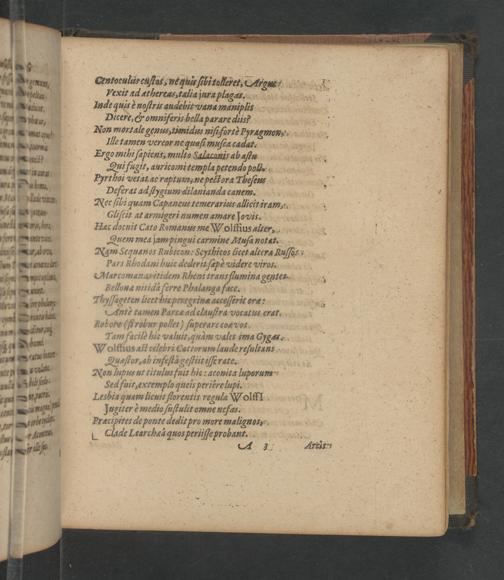 Centoculus custos, ne quis sibi tolleret, Argus
Vexit ad æthereas, talia jura plagas.
Inde quis è nostris audebit vana maniplis
Dicere, & omniferis bella parare diis?
Non mortale genus, timidus nisi fortè Pyragmon,
Ille tamen vereor ne quasi musca cadat.
Ergo mihi sapiens, multo Salaconis ab astu
Qui fugit, auricomi templa petendo poli.
Pyrthoi vetat ac raptum, ne pectora Theseus
Deferat ad stygium dilanianda canem.
Nec sibi quàm Capaneus temerarius allicit iram,
Gliscit at armigeri numen amare Jovis.
Hac docuit Cato Romanus me Wolffius alter,
Quem mea jam pingui carmine Musa notat.
Nam Sequanos Rubicon: Scythicos licet altera Russos
Pars Rhodani huic dederit sæpè videre viros.
Marcomanæ itidem Rheni trans flumina gentes
Bellona nitidâ ferre Phalanga face.
Thyssageten licet hic peregrina accesserit ora:
Antè tamen Parcæ ad claustra vocatus erat.
Robore (si robur pollet) superare coævos.
Tam facilè hic valuit, quàm valet ima Gygas.
Wolffius ast celebri Cattorum laude resultans
Quæstor, ab infestâ gestiit esse rate.
Non lupus ut titulus fuit hic: aconita luporum
Sed fuit, extemplo queis periêre lupi.
Lesbia quam licuit florentis regula Wolffi
Jugiter è medio sustulit omne nefas.
Præcipites de ponte dedit pro more malignos,
Clade Learchæâ quos periisse probant.
A 3 Artis